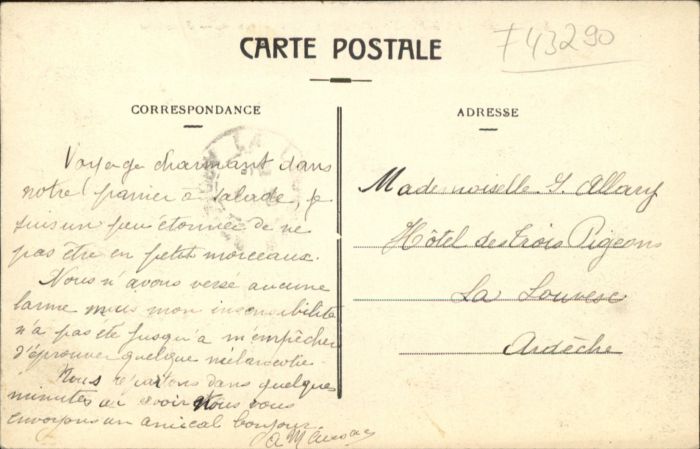 CARTE POSTALE
F 43290
CORRESPONDANCE
ADRESSE
Voyage charmant dans
notre panier à salade, je
suis un peu étonnée de ne
pas être en petits morceaux.
Nous n'avons versé aucune
larme mais mon insensibilité
n'a pas été jusqu'à m'empêcher
d'éprouver quelque mélancolie.
Nous repartons dans quelques
minutes Nous vous
envoyons un amical bonjour.
Mademoiselle S. Allary
Hôtel des trois Pigeons
La Louvesc
Ardèche